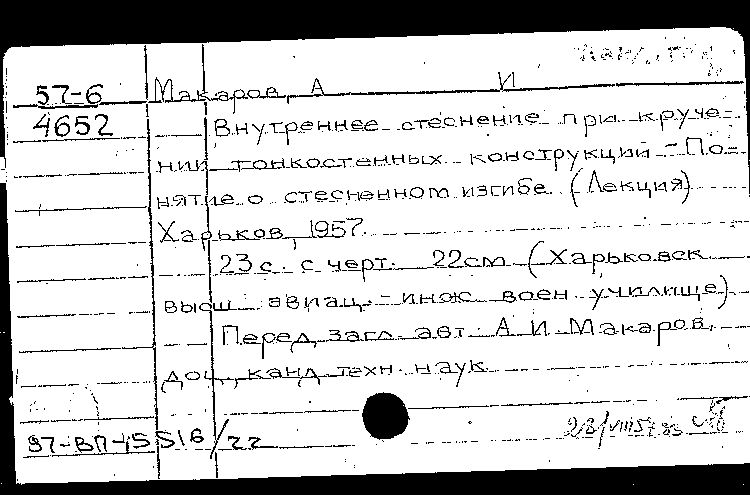 57-6 Макаров, А И
4652 Внутреннее стеснение при круче-
нии тонкостенных конструкций - По-
нятие о стесненном изгибе. (Лекция)
Харьков, 1957.
23 с. с черт. 22см (Харьковск
высш авиац.-инж воен училище)
Перед загл. авт. А И Макаров,
доц., канд техн. наук
57-ВП-15516/22